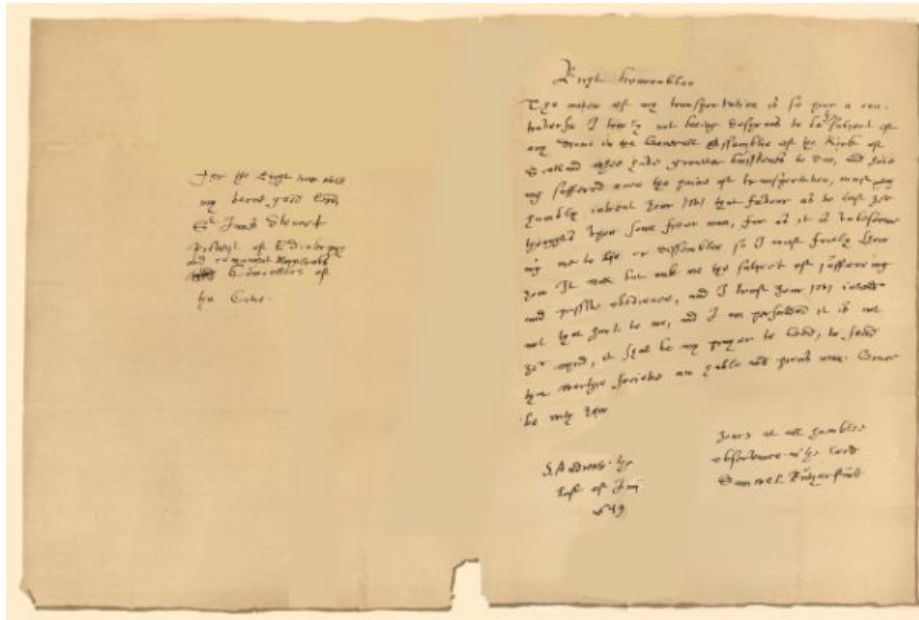 For the Right honorable
my verie good Lord
Sr James Stewart
Provest of Edinburgh
and remanent
Counsellers of
the Citie.
Right honorables
The mater of my transportation is so poor a con-
traversie I trewly not being desyrous to be the subject of
any dinne in the Generall Assemblie of the Kirk of
Scotland who have greater bussiness to doe, and having
suffered once the paine of transportation, most
humbly intreat your that favour as to cast your
thoughts upon some fitter man, for as it is unbeseem-
ing me to lye or dissemble so I must freely shew
you It will but mak me the subject of suffering
and passive obedience, and I trust your intends
not that hurt to me, and I am perswaded it is not
your mynd, it shal be my prayer to God, to send
that worthie societie an hable and pious man. Grace
be with you
Yours at all humble
observance in the Lord
Samuel Rutherfurd
S. Andrews the
last of
1649